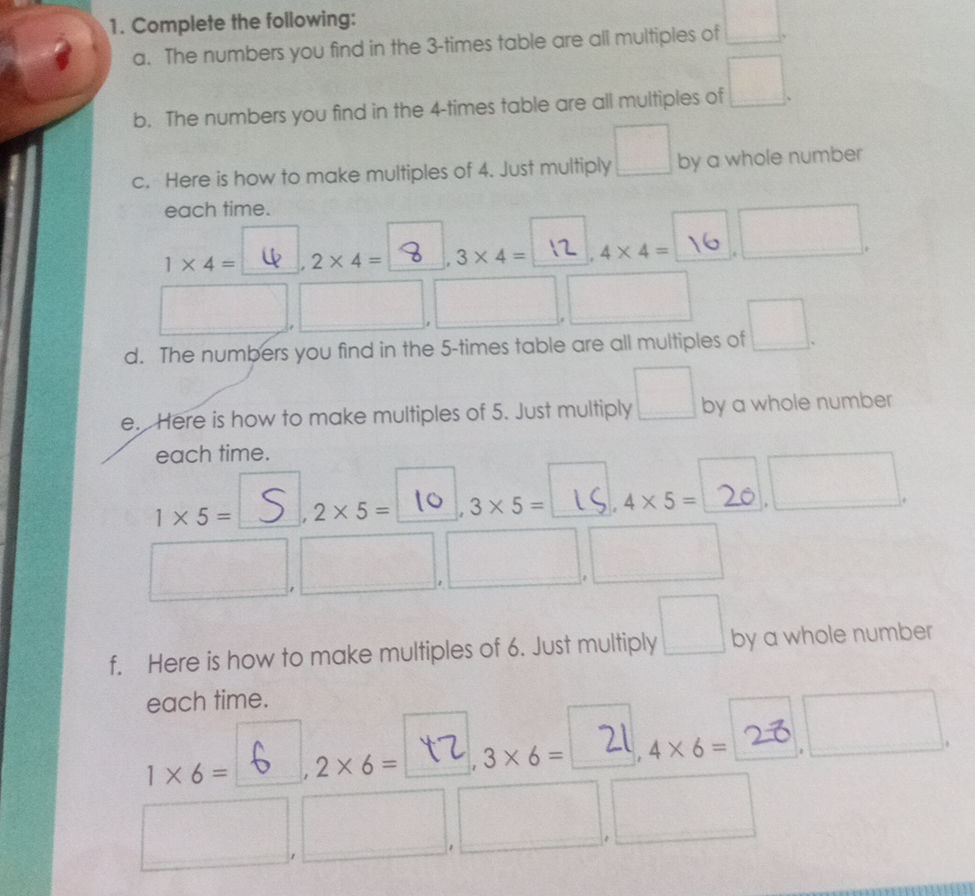 1. Complete the following:
a. The numbers you find in the 3-times table are all multiples of .
b. The numbers you find in the 4-times table are all multiples of .
c. Here is how to make multiples of 4. Just multiply by a whole number
each time.
1 × 4 = 4, 2 × 4 = 8, 3 × 4 = 12, 4 × 4 = 16, ,
, , ,
d. The numbers you find in the 5-times table are all multiples of .
e. Here is how to make multiples of 5. Just multiply by a whole number
each time.
1 × 5 = 5, 2 × 5 = 10, 3 × 5 = 15, 4 × 5 = 20, ,
, , ,
f. Here is how to make multiples of 6. Just multiply by a whole number
each time.
1 × 6 = 6, 2 × 6 = 12, 3 × 6 = 21, 4 × 6 = , ,
, , ,